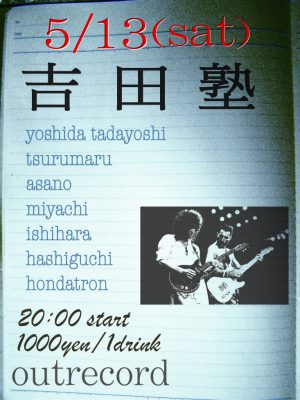 5/13(sat)
吉田塾
yoshida tadayoshi
tsurumaru
asano
miyachi
ishihara
hashiguchi
hondatron
20:00 start
1000yen/1drink
outrecord